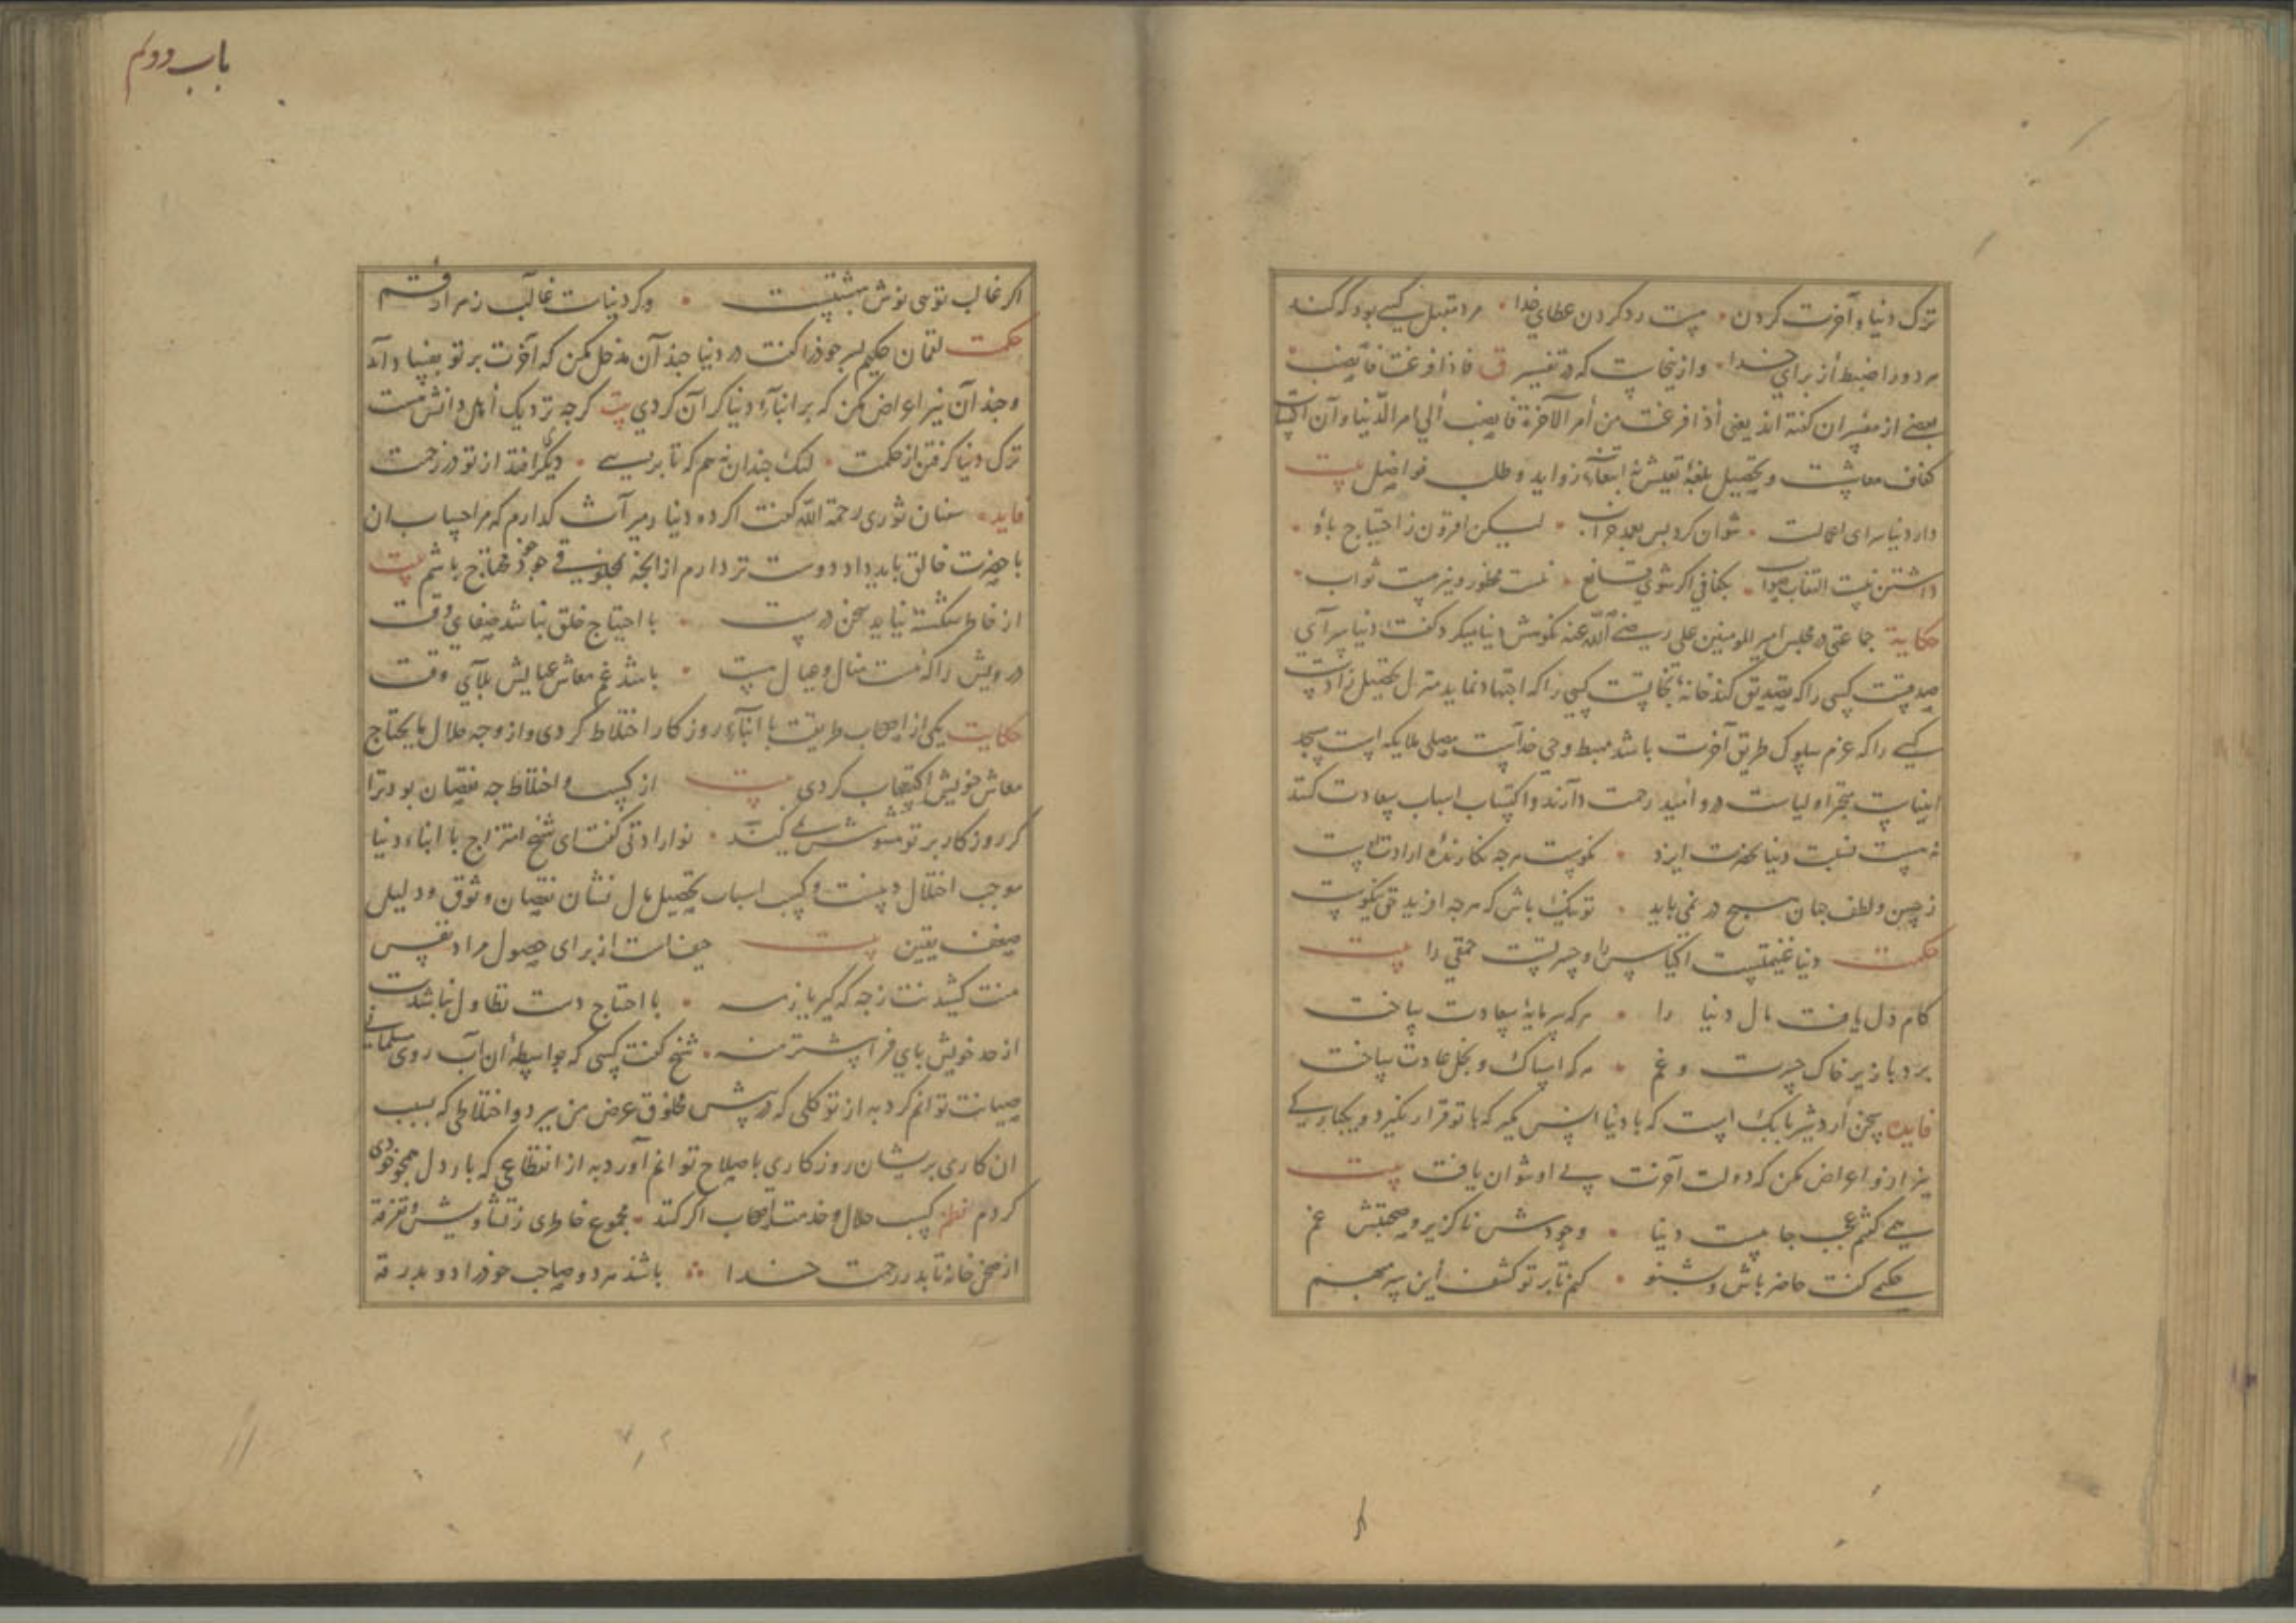 ترک دنیا و آخرت کردن • هست رد کردن عطای خدا • مرد مقبل کسی بود که کند
هر دو را ضبط از برای خدا • و از ینجاست که در تفسیر ق فاذا فرغت فانصب
بعضی از مفسران کفته اند یعنی اذا فرغت من امر الآخرة فانصب الی امر الدنیا و آن اکتساب
کفاف معاشست و تحصیل بلغهٔ تعیش نه ابتغاء زواید و طلب فواضل بیت
دار دنیا سرای • نتوان کرد بس • لیکن افزون ز احتیاج
داشتن نیست • بکفافی اکر شوی قانع • نیست محظور و نیز هست ثواب
حکایة جماعتی در مجلس امیر المومنین علی رضی الله عنه نکوهش دنیا میکرد کفت دنیا سرای
صدقست کسی را که تصدیق کند خانهٔ نجاتست کسی را که اجتهاد نماید منزل تحصیل زادست
کسی را که عزم سلوک طریق آخرت باشد مهبط وحی خداست مصلی ملایکه است مسجد
انبیاست متجر اولیاست در و امید رحمت دارند و اکتساب اسباب سعادت کنند
نسبت دنیا بحضرت ایزد • نکوست هرچه نکارندهٔ ارادت اوست
ز حسن و لطف جهان هیچ در نمی باید • تو نیک باش که هرچه افرید حق نیکوست
حکمت دنیا غنیمتست اکیاس را و حسرتست حمقی را بیت
کام دل یافت مال دنیا را • هر که سرمایهٔ سعادت ساخت
برد با زیر خاک حسرت و غم • هر که امساک و بخل عادت ساخت
فایده سخن اردشیر بابک است که با دنیا انس مکیر که با تو قرار نکیرد و یکبارکی
نیز ازو اعراض مکن که دولت آخرت بی او نتوان یافت بیت
همی کفتم عجب جاییست دنیا • وجودش ناکزیر و صحبتش غم
حکیمی کفت حاضر باش و بشنو • کنم تا بر تو کشف این سر مبهم
باب دوم
اکر غالب توی نوش بهشتیست • وکر دنیات غالب
حکمت لقمان حکیم پسر خود را کفت در دنیا چندان مدخل مکن که آخرت بر تو بفساد آید
و چندان نیز اعراض مکن که بر ابناء دنیا کران کردی بیت کرچه نزدیک اهل دانش هست
ترک دنیا کرفتن از حکمت • لیک چندان نه هم که تا برسی • دیکر افتد از تو در زحمت
فایده سفیان ثوری رحمة الله کفت اکر ده دنیا در میراث کذارم که مرا حساب ان
با حضرت خالق باید داد دوست تر دارم از انچه بمخلوقی چو خود محتاج باشم بیت
از خاطر شکسته نیاید سخن درست • با احتیاج خلق نباشد صفای وقت
درویش را که هست منال و عیال نیست • باشد غم معاش عیالش بلای وقت
حکایت یکی از اصحاب طریقت با ابناء روزکار اختلاط کردی و از وجه حلال مایحتاج
معاش خویش اکتساب کردی بیت از کسب و اختلاط چه نقصان بود ترا
کر روزکار بر تو مشوش نمی کنند • نو ارادتی کفت ای شیخ امتزاج با ابناء دنیا
موجب اختلال دینست و کسب اسباب تحصیل مال نشان نقصان وثوق و دلیل
ضعف یقین بیت حیفست از برای حصول مراد نفس
منت کشیدنت زچه که کیر باز • با احتیاج دست تطاول نباشدت
از حد خویش پای فراپیشتر منه • شیخ کفت کسی که بواسطهٔ ان آب روی مسلمانی
صیانت توانم کرد به از توکلی که در پیش مخلوق عرض من ببرد و اختلاطی که بسبب
ان کار پریشان روزکاری باصلاح توانم آورد به از انقطاعی که بار دل همچو خودی
کردم نظم کسب حلال و خدمت اصحاب اکر کند • مجموع خاطری ز تشاویش و تفرقه
از صحن خانه تا بدر رحمت خدا • باشند هر دو صاحب خود را دو بدرقه